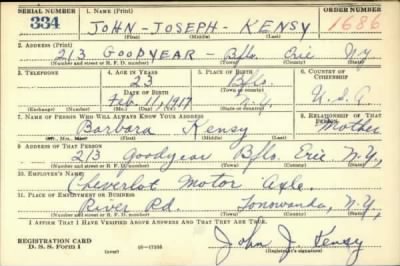 SERIAL NUMBER 1. NAME (Print) ORDER NUMBER
334 JOHN - JOSEPH - KENSY 1686
(First) (Middle) (Last)
2. ADDRESS (Print)
213 GOODYEAR - Bflo. Erie N.Y
(Number and street or R. F. D. number) (Town) (County) (State)
3. TELEPHONE 4. AGE IN YEARS 5. PLACE OF BIRTH 6. COUNTRY OF CITIZENSHIP
23 Bflo.
DATE OF BIRTH (Town or county)
Feb. 1, 1917 N.Y. U.S.A
(Exchange) (Number) (Mo.) (Day) (Yr.) (State or country)
7. NAME OF PERSON WHO WILL ALWAYS KNOW YOUR ADDRESS 8. RELATIONSHIP OF THAT PERSON
Barbara Kensy Mother
(Mr., Mrs., Miss) (First) (Middle) (Last)
9. ADDRESS OF THAT PERSON
213 Goodyear Bflo. Erie N.Y,
(Number and street or R. F. D. number) (Town) (County) (State)
10. EMPLOYER'S NAME
Cheverlot Motor Axle.
11. PLACE OF EMPLOYMENT OR BUSINESS
River Rd. Tonowanda, N.Y,
(Number and street or R. F. D. number) (Town) (County) (State)
I AFFIRM THAT I HAVE VERIFIED ABOVE ANSWERS AND THAT THEY ARE TRUE.
REGISTRATION CARD
D. S. S. Form 1 (over) 16-17105 John J. Kensy
(Registrant's signature)